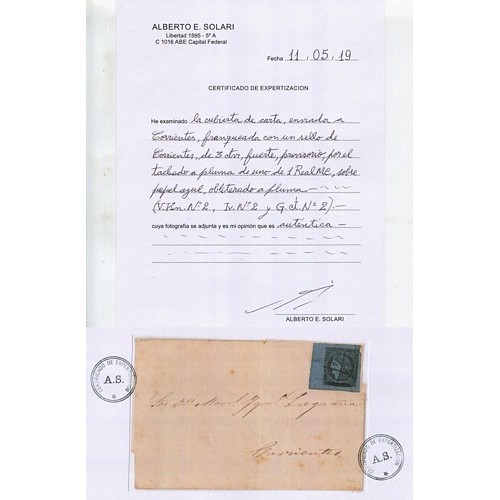 ALBERTO E. SOLARI
Libertad 1595 - 5º A
C 1016 ABE Capital Federal
Fecha 11.05.19
CERTIFICADO DE EXPERTIZACION
He examinado la cubierta de carta, enviada a
Corrientes, franqueada con un sello de
Corrientes, de 3 ctvs. fuerte, provisorio, por el
tachado a pluma de uno de 1 Real MC, sobre
papel azul, obliterado a pluma
(V.Kn. Nº 2, Iv. Nº 2 y G.J. Nº 2).-
cuya fotografía se adjunta y es mi opinión que es auténtica
ALBERTO E. SOLARI
CERTIFICADO DE EXPERTIZACION
A.S.
Corrientes
CERTIFICADO DE EXPERTIZACION
A.S.